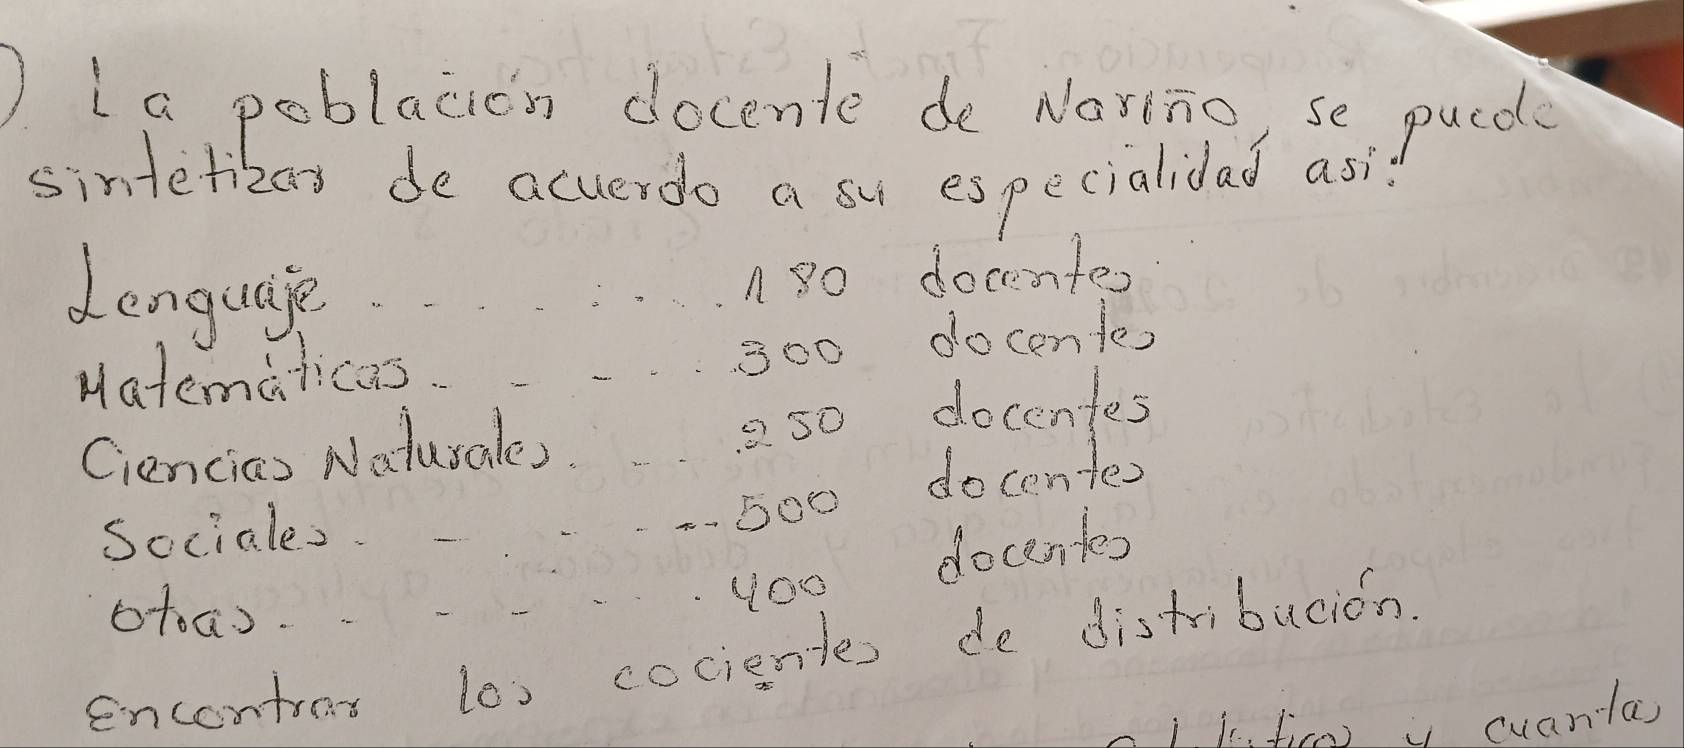 ) La población docente de Nariño, se puede
sintétizar de acuerdo a su especialidad asi:
Lenguaje . . . . . . . . . 180 docentes
Matemáticas. - - - . . . 300 docentes
Ciencias Naturales. - - . . 250 docentes
Sociales. - . - - - - 500 docentes
otras. . - - - . . . 400 docentes
Encontrar los cocientes de distribución.
y cuantas